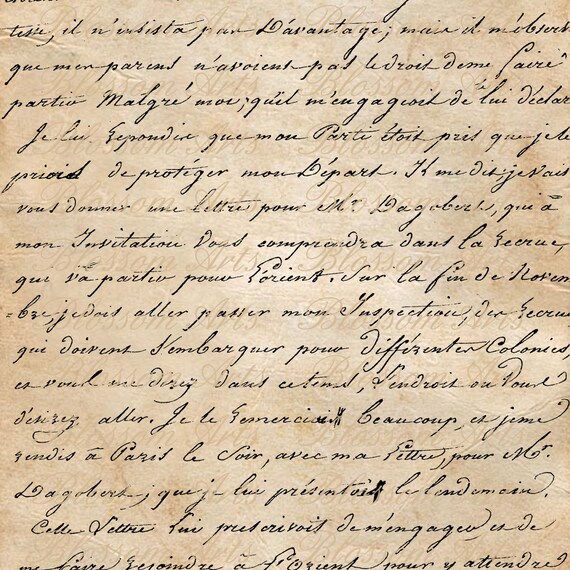 tise, il n'insista pas Davantage; mais il m'observ
que mes parens n'avoient pas le droit de me faire
partir Malgré moi; qu'il m'engageoit de lui déclar
Je lui repondis que mon Parti étoit pris que je le
priois de proteger mon Départ. Il me dit; je vais
vous donner une lettre pour Mr. Dagobert, qui à
mon Invitation vous comprendra dans la recrue,
qui va partir pour L'orient. Sur la fin de Novem
=bre, je dois aller passer mon Inspection, des recrues
qui doivent s'embarquer pour différentes Colonies,
et vous me direz dans ce tems, L'endroit ou vous
désirez aller. Je le remerciai beaucoup, et je me
rendis à Paris le Soir, avec ma Lettre, pour Mr.
Dagobert, que je lui présentai le lendemain.
Cette Lettre lui prescrivoit de m'engager, et de
me faire rejoindre à L'Orient pour y attendre
Blossom Arts